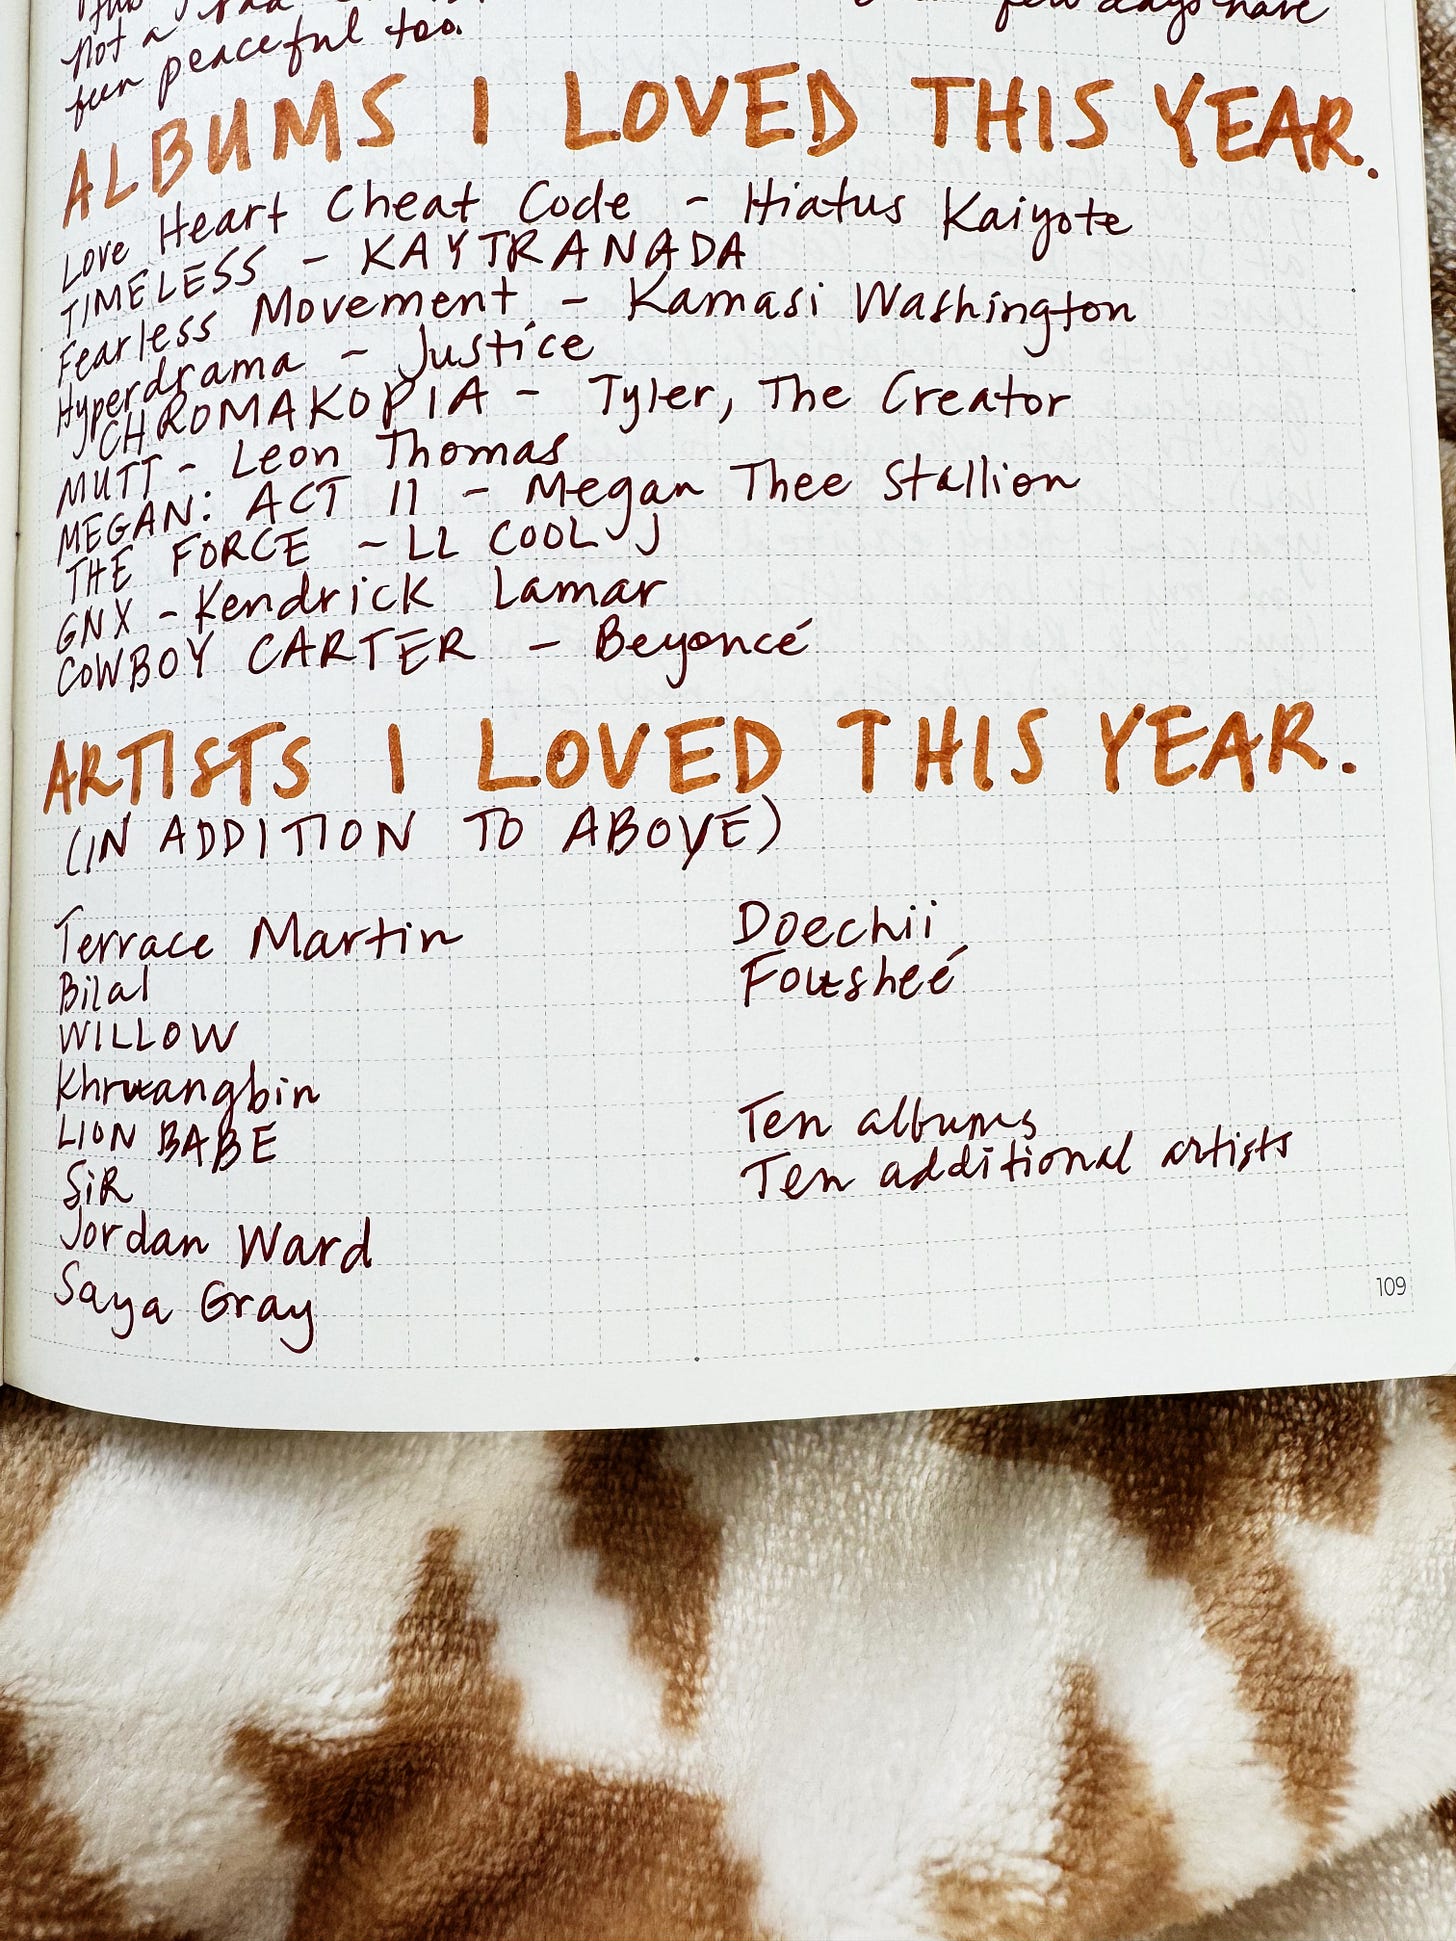 not a few days have
fun peaceful too.
ALBUMS I LOVED THIS YEAR.
Love Heart Cheat Code - Hiatus Kaiyote
TIMELESS - KAYTRANADA
Fearless Movement - Kamasi Washington
Hyperdrama - Justice
CHROMAKOPIA - Tyler, The Creator
MUTT - Leon Thomas
MEGAN: ACT II - Megan Thee Stallion
THE FORCE - LL COOL J
GNX - Kendrick Lamar
COWBOY CARTER - Beyoncé
ARTISTS I LOVED THIS YEAR.
(IN ADDITION TO ABOVE)
Terrace Martin
Bilal
WILLOW
Khruangbin
LION BABE
SiR
Jordan Ward
Saya Gray
Doechii
Fousheé
Ten albums
Ten additional artists
109